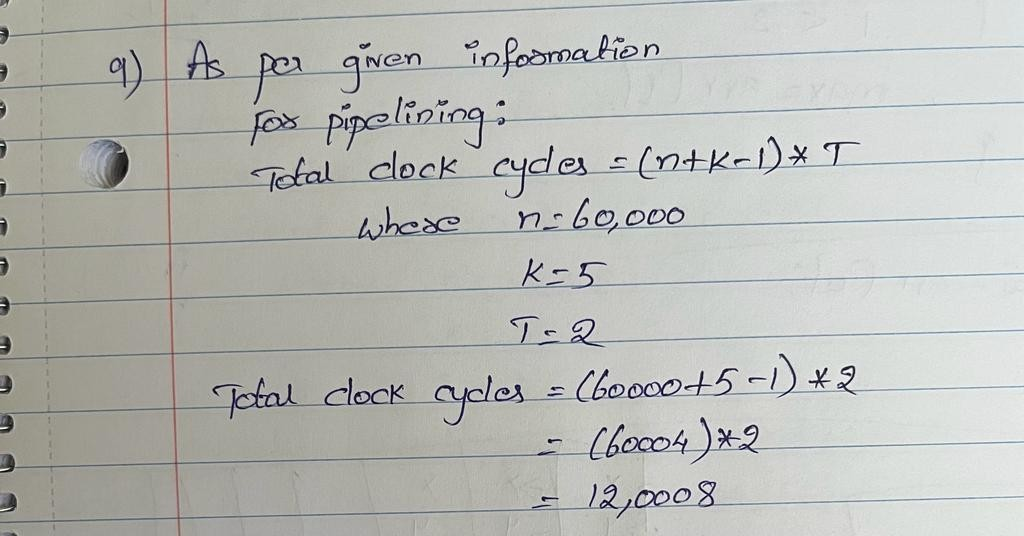 9) As per given information
For pipelining:
Total clock cycles = (n+k-1) * T
where n=60,000
K=5
T=2
Total clock cycles = (60000+5-1) *2
= (60004)*2
= 12,0008